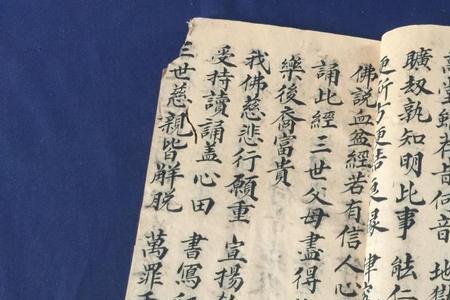 地獄
曠劫孰知明此事 能仁
佛說血盆經若有信人心
誦此經三世父母盡得
樂後裔富貴
我佛慈悲行願重 宣揚
受持讀誦盖心田 書寫
三世慈親皆觧脱 萬罪